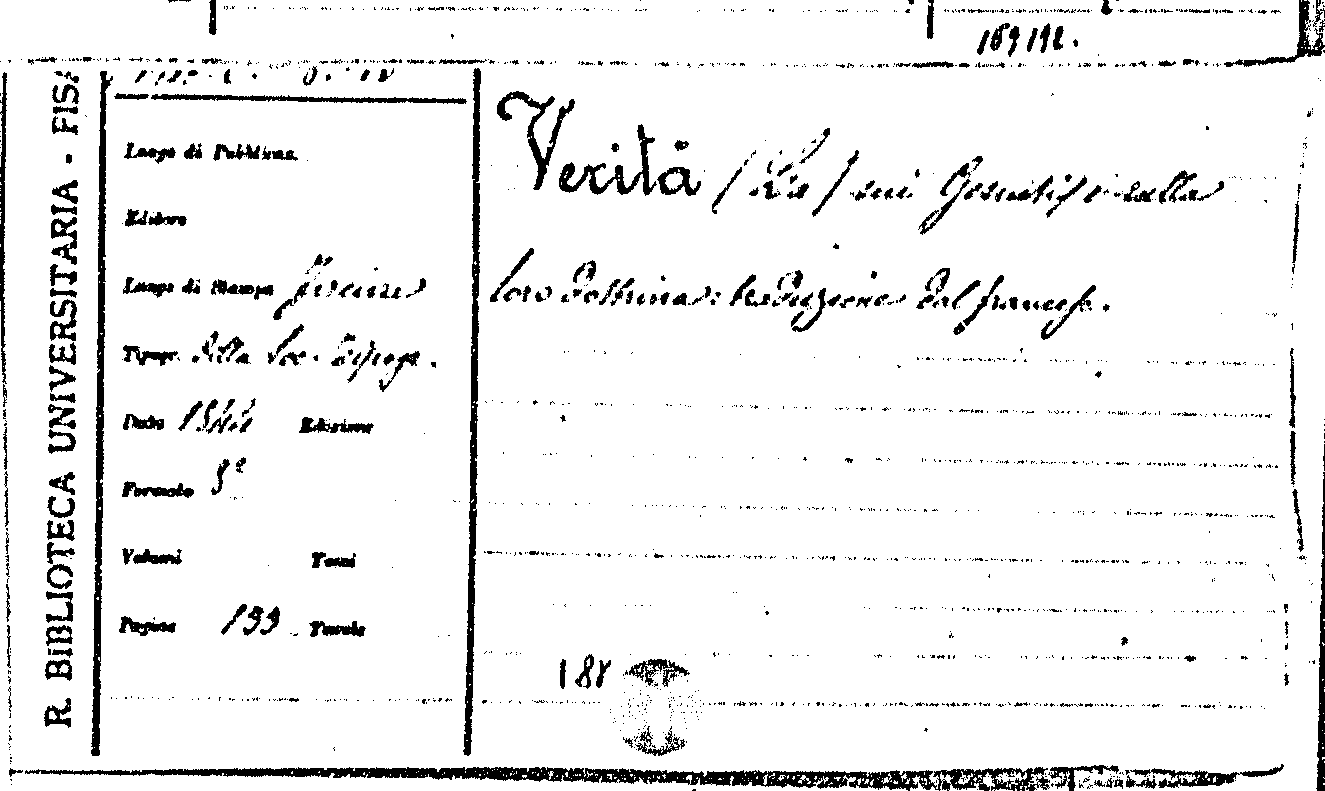 169192.
R. BIBLIOTECA UNIVERSITARIA - PISA
Luogo di Pubblicaz.
Editore
Luogo di Stampa Firenze
Tipogr. della Soc. Tipogr.
Data 1844 Edizione
Formato 8°
Volumi Tomi
Pagine 199 Tavole
Verità (La) sui Gesuiti e sulla
loro dottrina: traduzione dal francese.
188